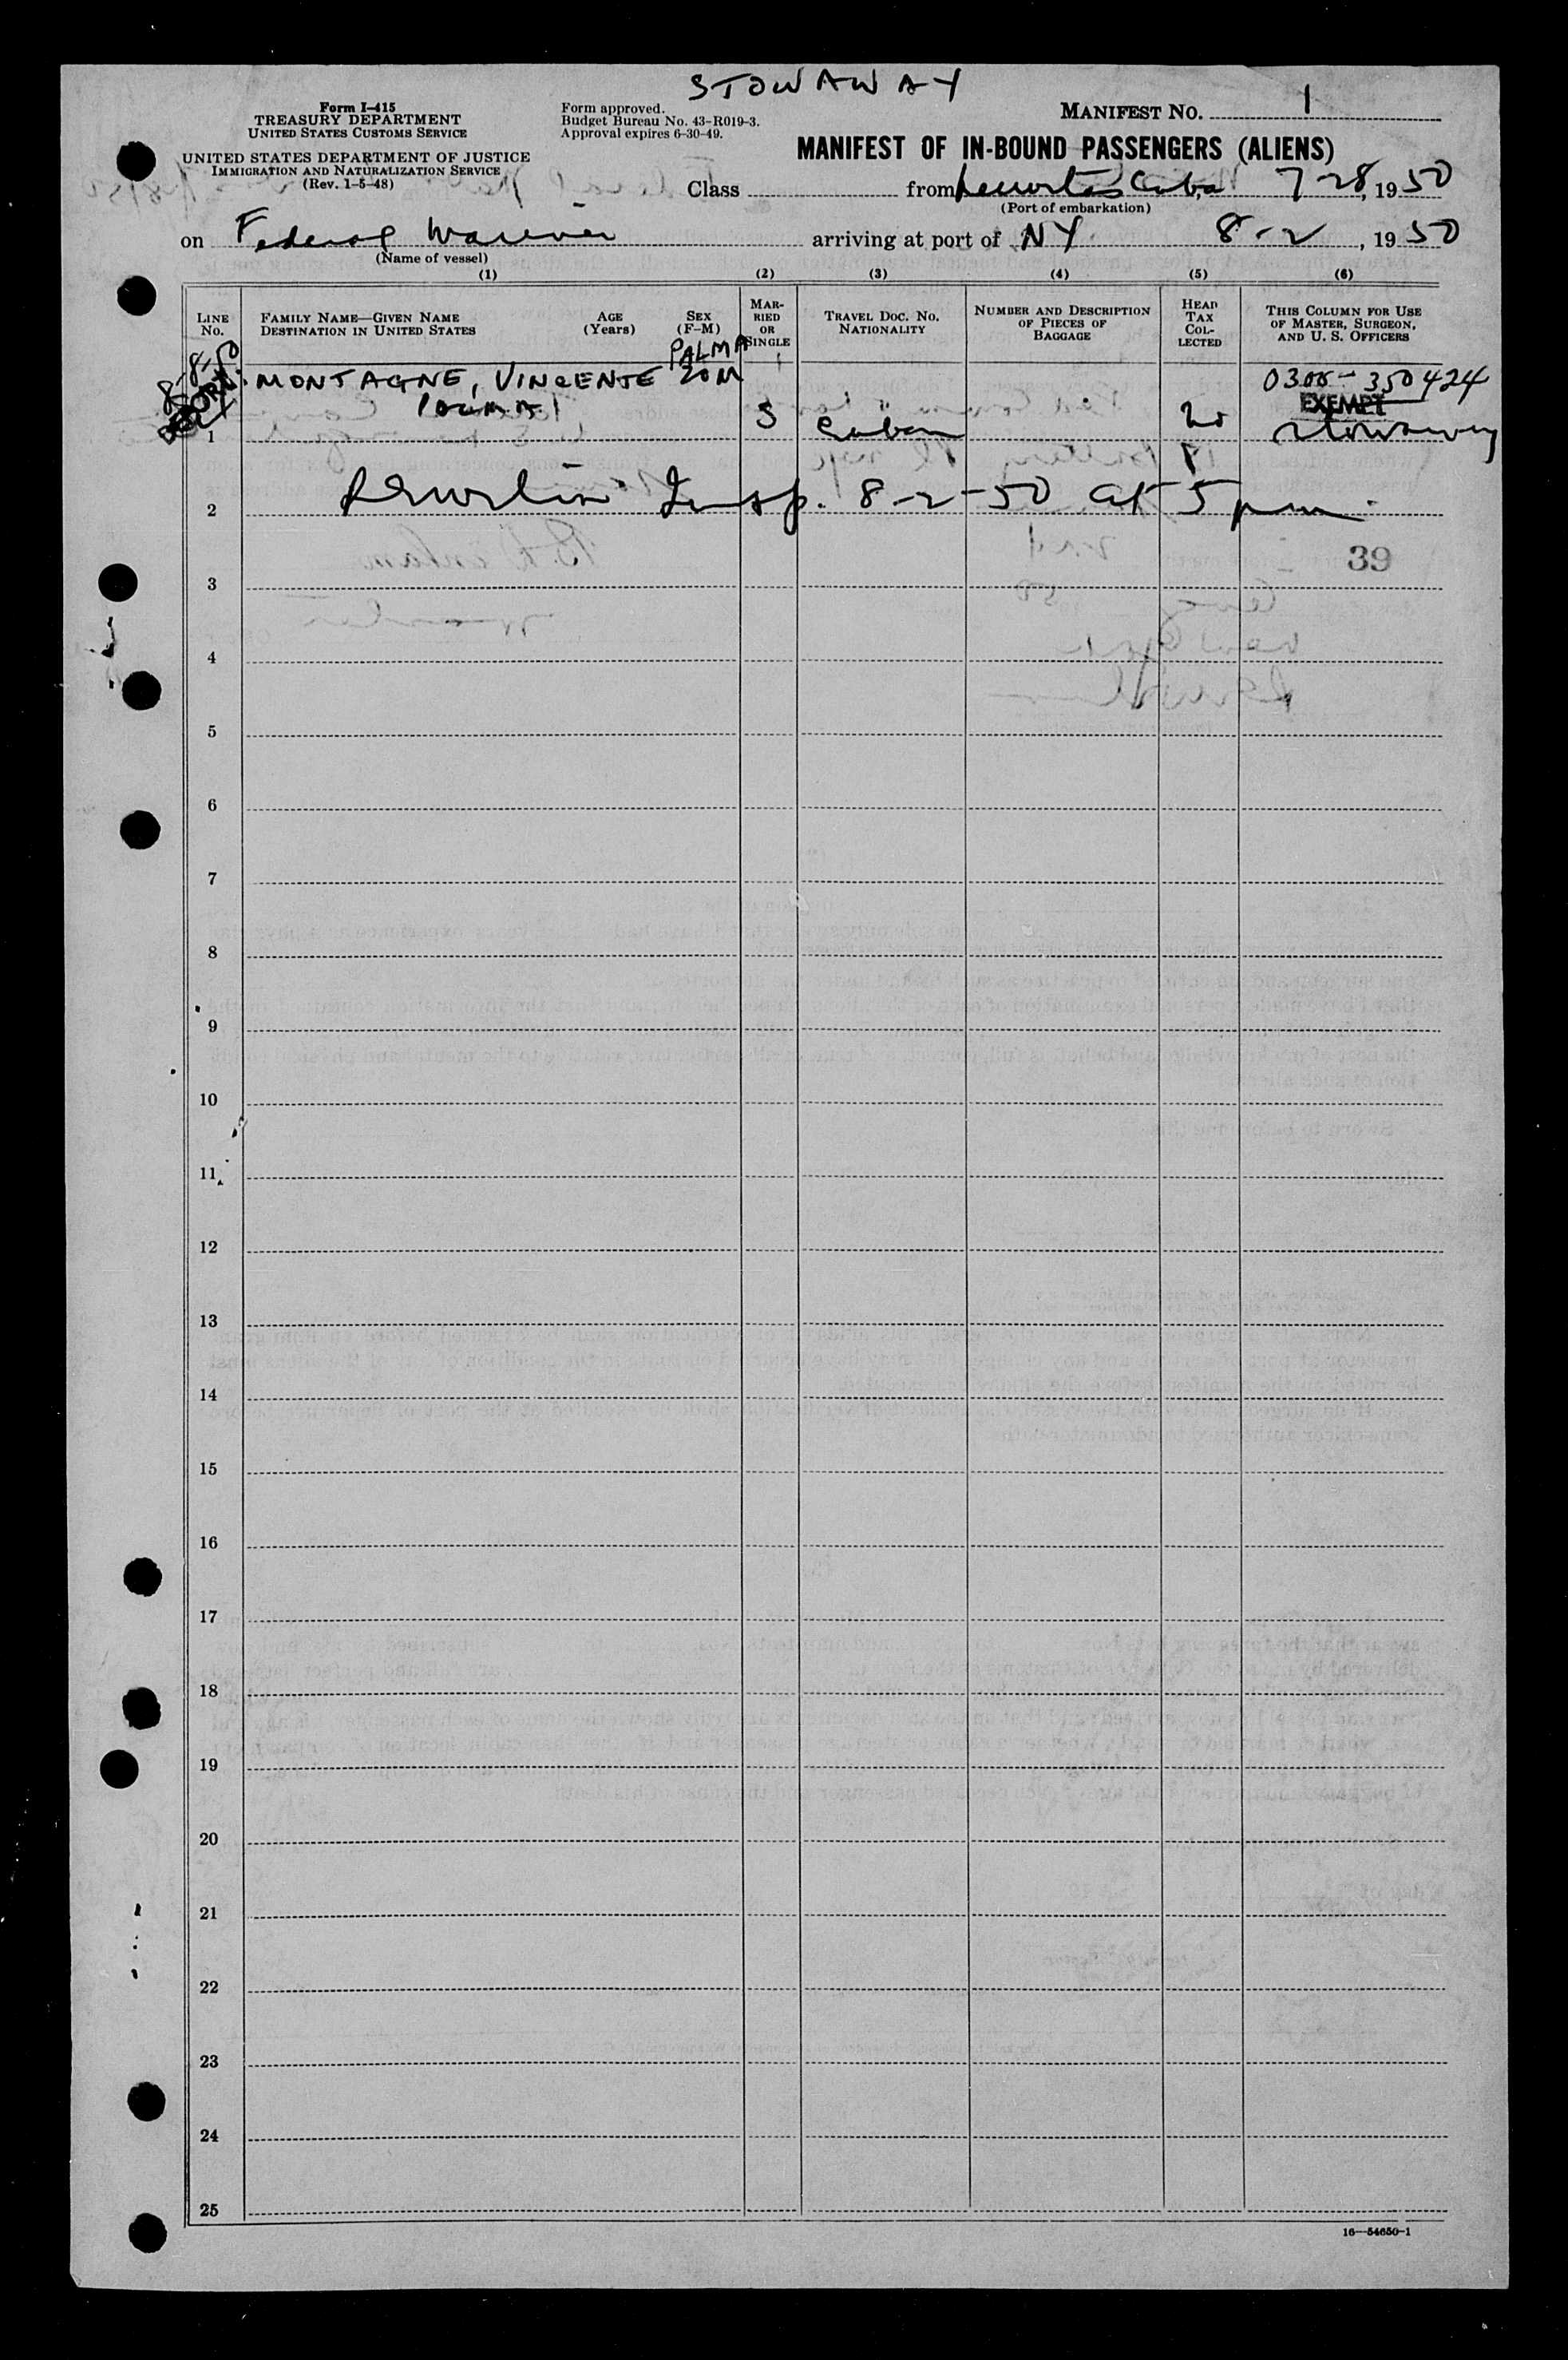 STOWAWAY
Form I-415
TREASURY DEPARTMENT
UNITED STATES CUSTOMS SERVICE
UNITED STATES DEPARTMENT OF JUSTICE
IMMIGRATION AND NATURALIZATION SERVICE
(Rev. 1-5-48)
Form approved.
Budget Bureau No. 43-R019-3.
Approval expires 6-30-49.
MANIFEST NO. 1
MANIFEST OF IN-BOUND PASSENGERS (ALIENS)
Class from Cuba 7-28, 1950
(Port of embarkation)
on Federal Mariner arriving at port of NY. 8-2, 1950
(Name of vessel)
(1) (2) (3) (4) (5) (6)
LINE NO.
FAMILY NAME—GIVEN NAME
DESTINATION IN UNITED STATES
AGE (Years)
SEX (F-M)
MARRIED OR SINGLE
TRAVEL DOC. NO.
NATIONALITY
NUMBER AND DESCRIPTION OF PIECES OF BAGGAGE
HEAD TAX COLLECTED
THIS COLUMN FOR USE OF MASTER, SURGEON, AND U. S. OFFICERS
8-8-50
PALMA
MONTAGNE, VINCENTE 20 M
0300-350424
EXEMPT
1 S Cuban Stowaway
2 Insp. 8-2-50 at 5 pm
39
3
4
5
6
7
8
9
10
11
12
13
14
15
16
17
18
19
20
21
22
23
24
25
16—54650-1